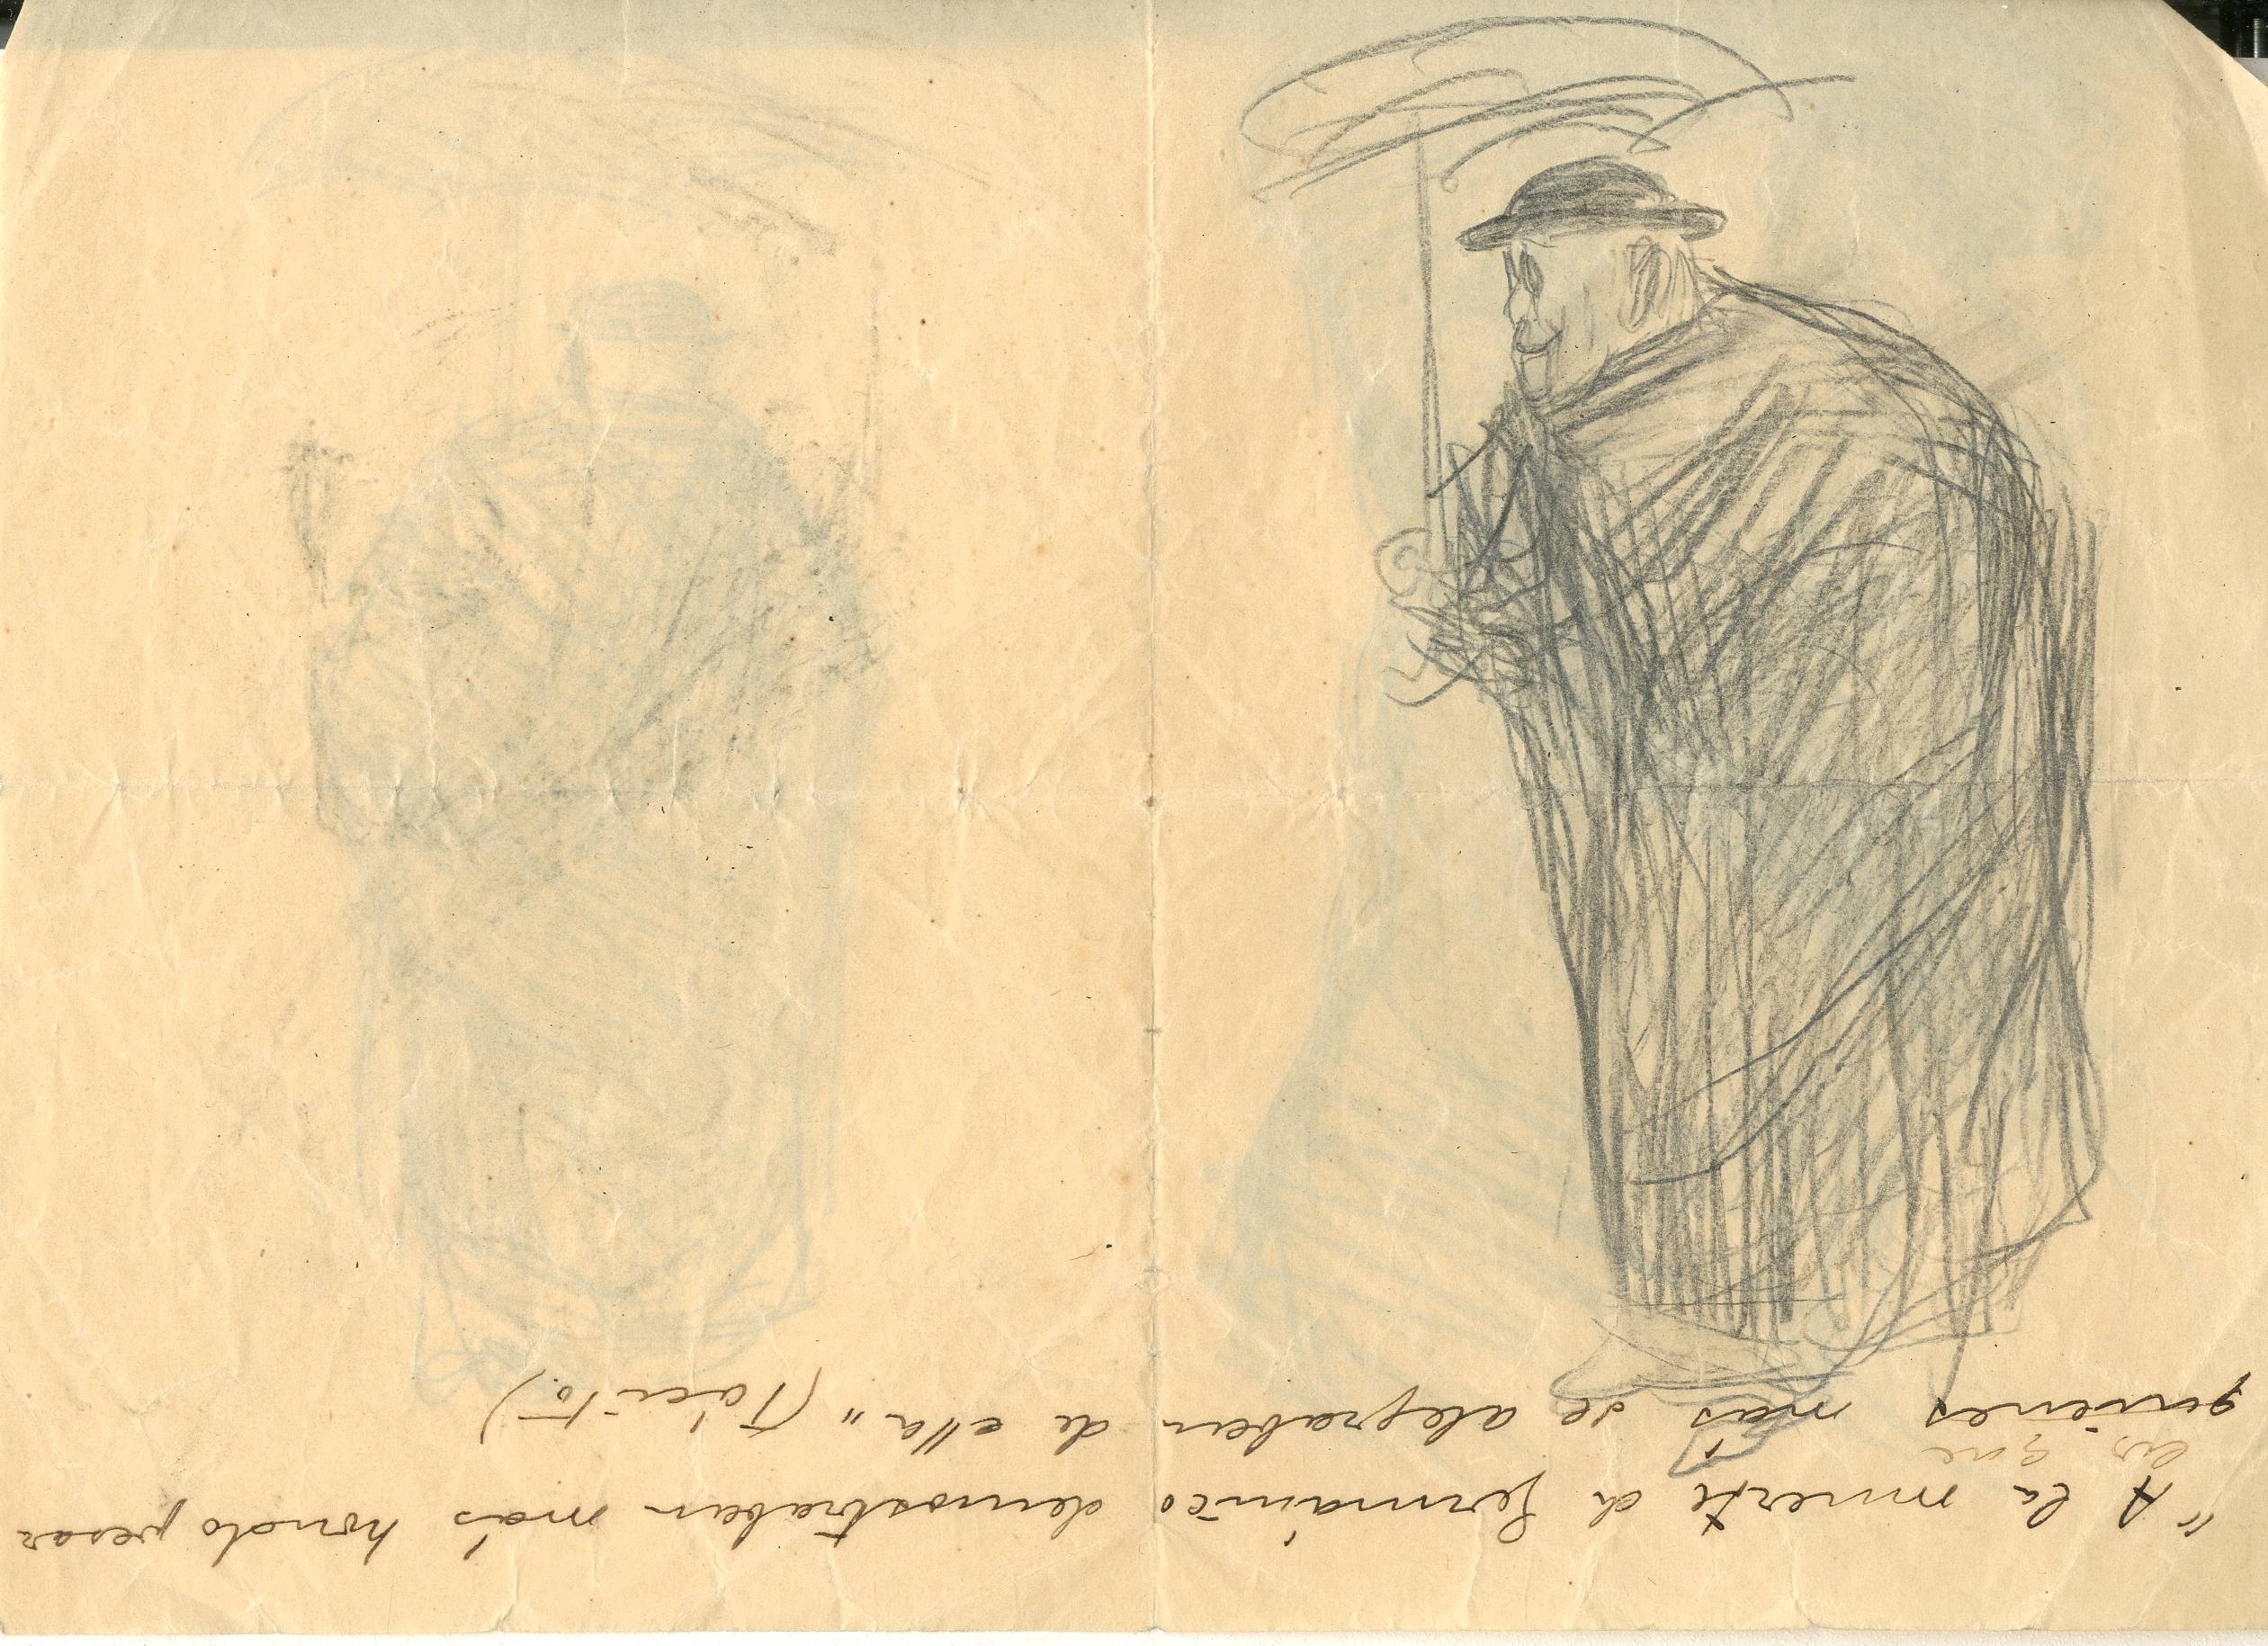 "A la muerte de Germánico demostraban más hondo pesar
los que
quienes más se alegraban de ella" (Tácito)